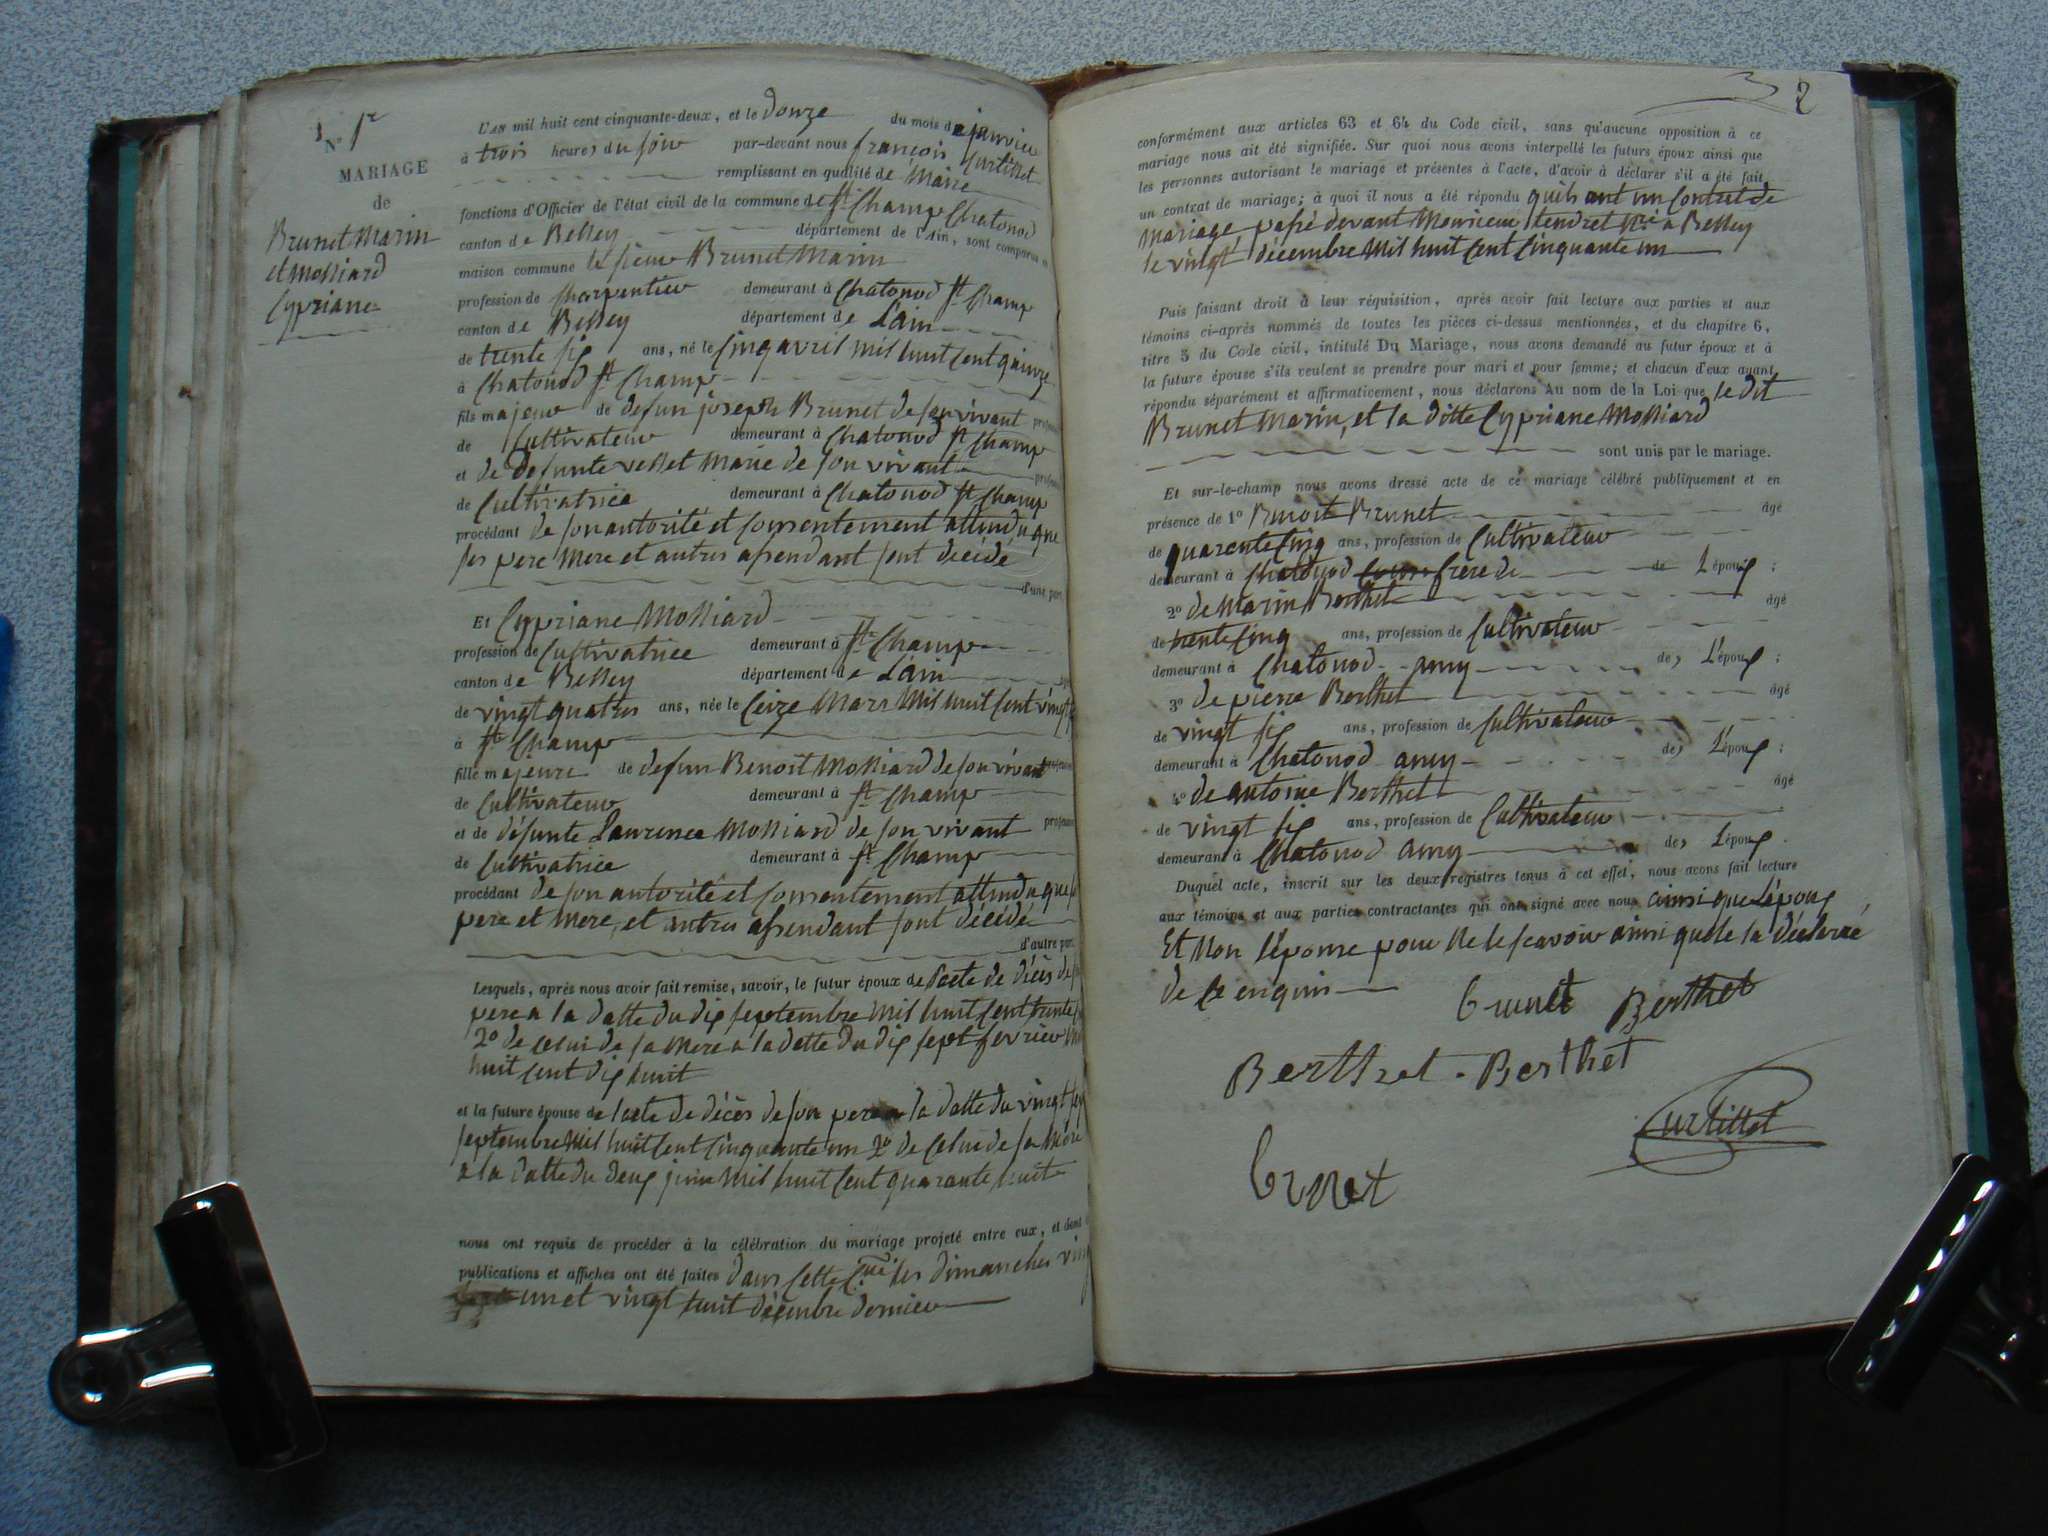 N° 1r
MARIAGE
de
Brunet Marin
et Molliard
Cypriane
L'AN mil huit cent cinquante-deux, et le douze du mois de janvier
à trois heures du soir par-devant nous françois Curtillet
remplissant en qualité de Maire
fonctions d'Officier de l'état civil de la commune de St Champ Chatonod
canton de Belley département de l'Ain, sont comparus
maison commune le sieur Brunet Marin
profession de Charpentier demeurant à Chatonod St Champ
canton de Belley département de L'ain
de trente six ans, né le cinq avril mil huit cent quinze
à Chatonod St Champ
fils majeur de defun joseph Brunet de son vivant
de Cultivateur demeurant à Chatonod St Champ
et de defunte vellet Marie de son vivant
de Cultivatrice demeurant à Chatonod St Champ
procédant de son autorité et consentement attendu que
ses pere Mere et autres assendant sont décidé
d'une part
Et Cypriane Molliard
profession de Cultivatrice demeurant à St Champ
canton de Belley département de L'ain
de vingt quatres ans, née le Ceize Mars Mil huit Cent vingt
à St Champ
fille majeure de defun Benoit Molliard de son vivant
de Cultivateur demeurant à St Champ
et de défunte Laurence Molliard de son vivant
de Cultivatrice demeurant à St Champ
procédant de son autorité et consentement attendu que
pere et Mere, et autres assendant sont décidé
d'autre part
Lesquels, après nous avoir fait remise, savoir, le futur époux de l'acte de décès de
pere a la datte du dix septembre Mil huit Cent trente
2° de celui de sa Mere a la datte du dix sept fevrier
huit cent dix huit
et la future épouse de l'acte de décès de son pere a la datte du vingt
septembre Mil huit Cent Cinquante un 2° de Celui de sa Mère
a la datte du deux juin Mil huit Cent quarante huit
nous ont requis de procéder à la célébration du mariage projeté entre eux, et dont
publications et affiches ont été faites dans Cette Cne les dimanches
un et vingt huit décembre dernier
2
conformément aux articles 63 et 64 du Code civil, sans qu'aucune opposition à ce
mariage nous ait été signifiée. Sur quoi nous avons interpellé les futurs époux ainsi que
les personnes autorisant le mariage et présentes à l'acte, d'avoir à déclarer s'il a été fait
un contrat de mariage; à quoi il nous a été répondu quils ont un Contrat de
Mariage passé devant Monsieur tendret Nre a Belley
le vingt décembre Mil huit Cent Cinquante un
Puis faisant droit à leur réquisition, après avoir fait lecture aux parties et aux
témoins ci-après nommés de toutes les pièces ci-dessus mentionnées, et du chapitre 6,
titre 5 du Code civil, intitulé Du Mariage, nous avons demandé au futur époux et à
la future épouse s'ils veulent se prendre pour mari et pour femme; et chacun d'eux ayant
répondu séparément et affirmativement, nous déclarons Au nom de la Loi que le dit
Brunet Marin, et la ditte Cypriane Molliard
sont unis par le mariage.
Et sur-le-champ nous avons dressé acte de ce mariage célébré publiquement et en
présence de 1° Benoit Brunet âgé
de quarente Cinq ans, profession de Cultivateur
demeurant à Chatonod frere de de L'époux;
2° de Marin Berthet âgé
de trente Cinq ans, profession de Cultivateur
demeurant à Chatonod amy des L'époux;
3° de pierre Berthet âgé
de vingt six ans, profession de Cultivateur
demeurant à Chatonod amy des L'époux;
4° de antoine Berthet âgé
de vingt six ans, profession de Cultivateur
demeurant à Chatonod amy des L'époux.
Duquel acte, inscrit sur les deux registres tenus à cet effet, nous avons fait lecture
aux témoins et aux parties contractantes qui ont signé avec nous ainsi que L'époux
Et Non l'épouse pour Ne le scavoir ainsi quelle la déclaré
de Ce enquis
brunet Berthet
Berthet . Berthet
Curtillet
brunet